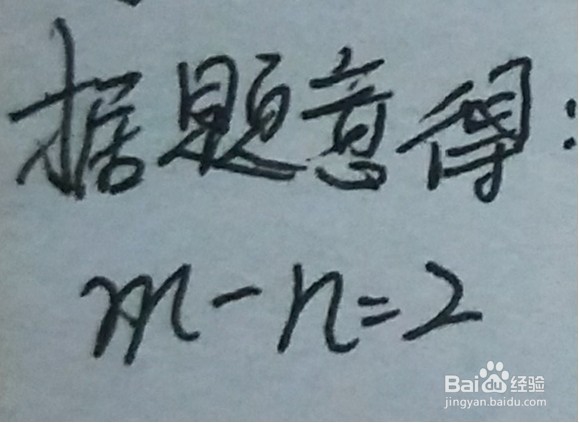 据题意得：
m-n=2
Baidu经验
jingyan.baidu.com